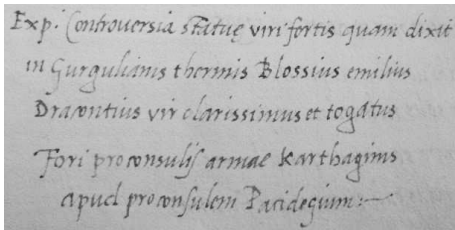 Exp. Controversia statuę viri fortis quam dixit
in Gurgulianis thermis Blossius emilius
Dracontius vir clarissimus et togatus
Fori proconsulis armae Karthaginis
apud proconsulem Pacidegium :~